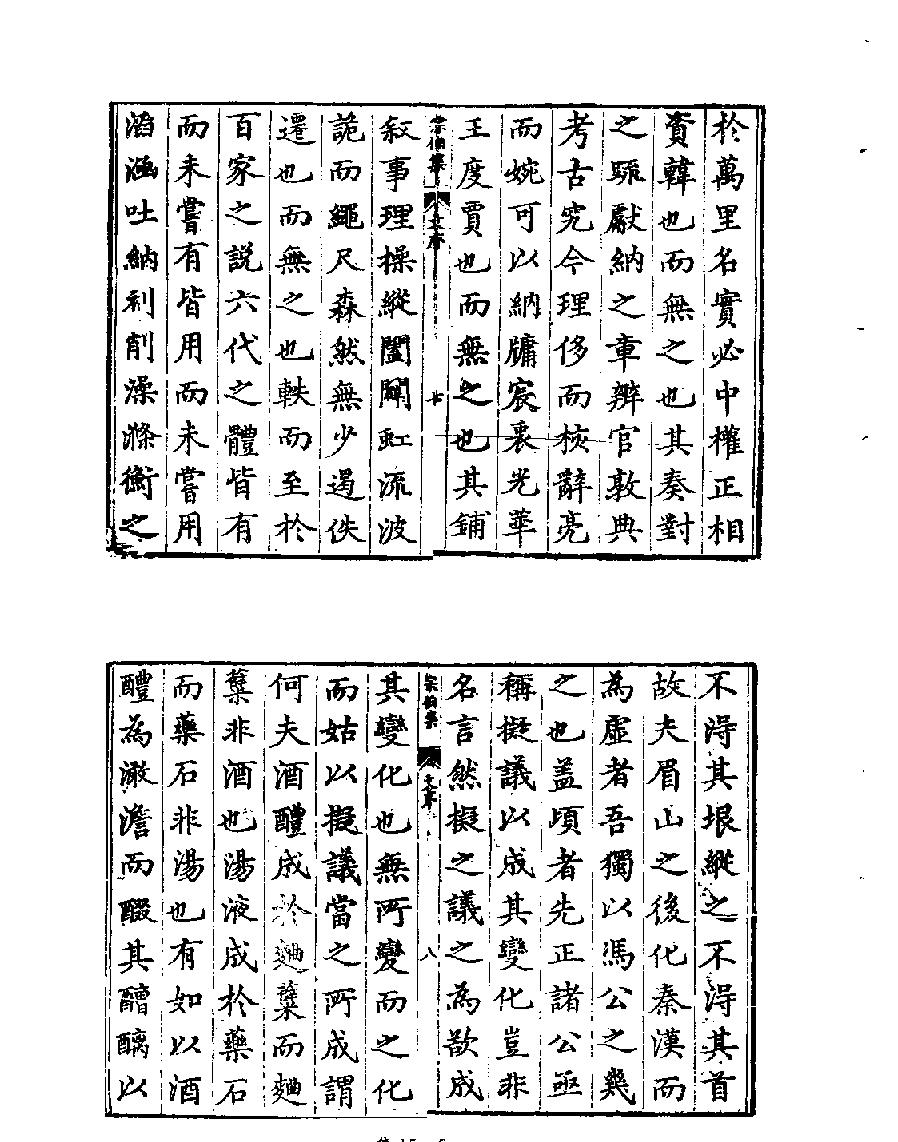 於萬里名實必中權正相
賓韓也而無之也其奏對
之䟽獻納之章辨官敦典
考古究今理侈而核辭亮
而婉可以納牖扆裹光華
王度賈也而無之也其鋪
宗伯集
文序
敍事理操縱闔闢虹流波
詭而繩尺森然無少遏佚
遷也而無之也軼而至於
百家之說六代之體皆有
而未嘗有皆用而未嘗用
滔涵吐納刹削澡滌衡之
不淂其垠縱之不淂其首
故夫眉山之後化秦漢而
為虛者吾獨以馮公之㡬
之也蓋頃者先正諸公亟
稱擬議以成其變化豈非
名言然擬之議之為欲成
宗伯集
文序
八
其變化也無所變而之化
而姑以擬議當之所成謂
何夫酒醴成於麯糱而麯
糱非酒也湯液成於藥石
而藥石非湯也有如以酒
醴為澉澹而醊其醩醨以